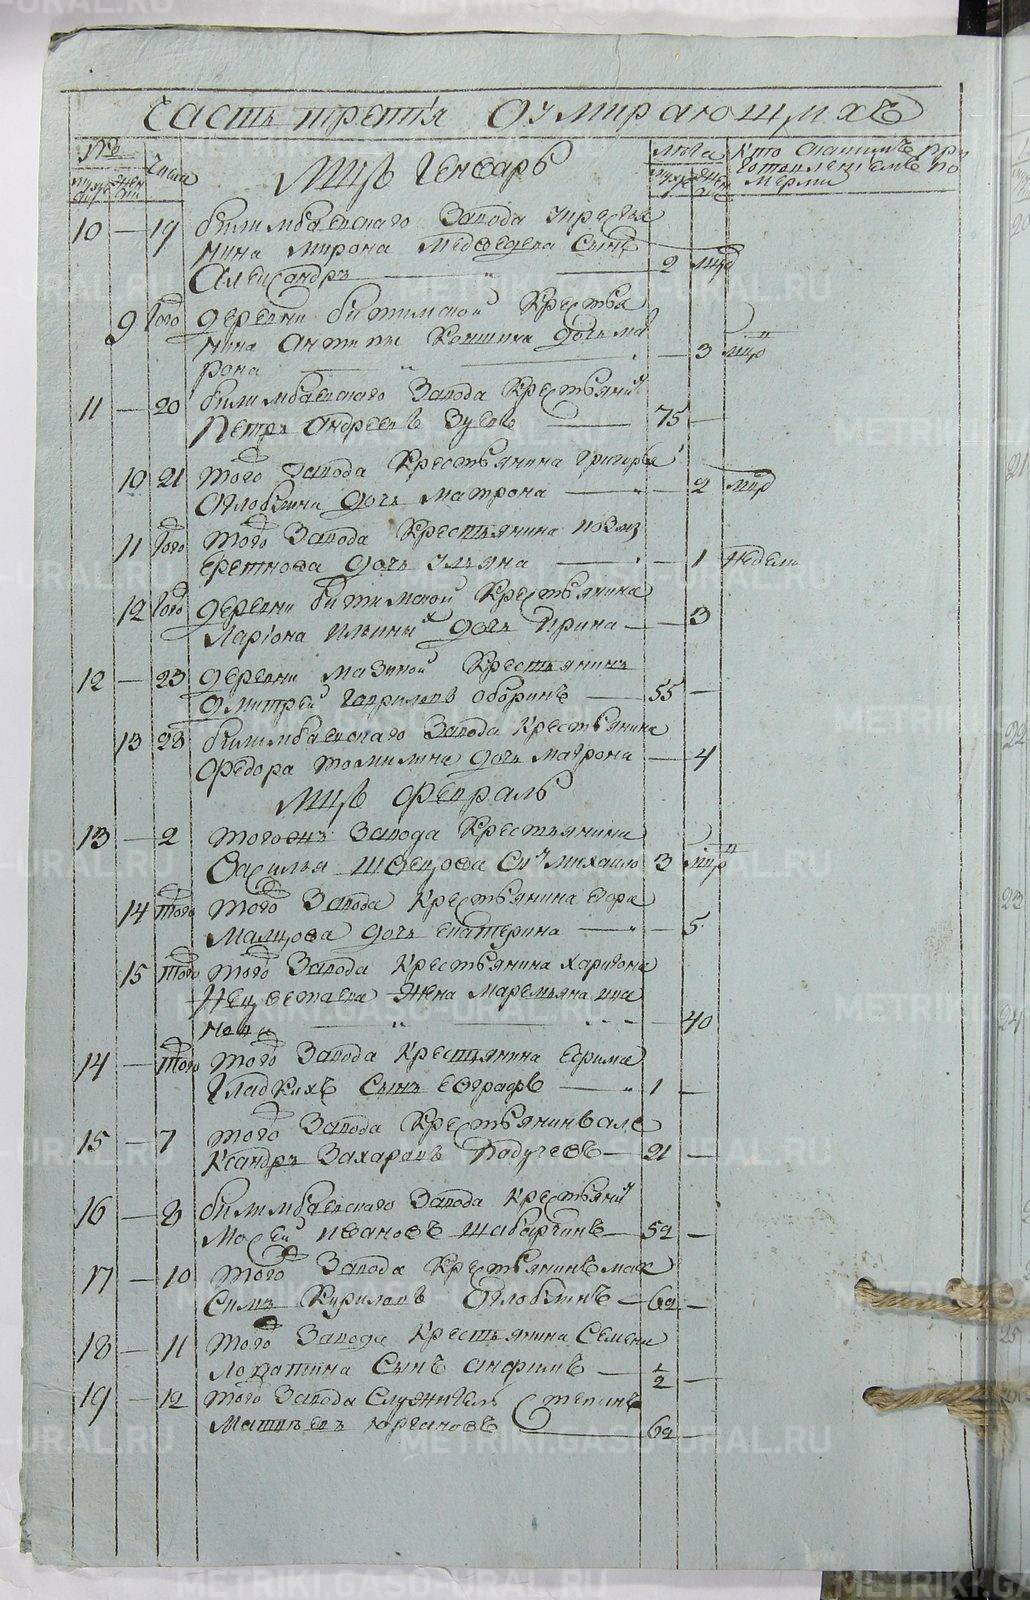 METRIKI.GASO-URAL.RU
часть третiя оумирающихъ
№ числа Мцъ Генварь лѣта Кто какимъ при
муж жен муж жен
10 — 19 билимбаевскаго завода крестья
нина мирона медведева сынъ
Александръ — " — 2 мцъ
9 того деревни битимской крестья
нина антипы коншина дочь ма
рона — " — 3 мцъ
11 — 20 билимбаевскаго завода крестьяни
Петръ андреевъ зуевъ — 75 —
10 21 того завода крестьянина григорья
дочь матрона — 2 мцъ
11 того того завода крестьянина
дочь ульяна — 1 недели
12 того деревни битимской крестьянина
ларiона ильиныхъ дочь Ирина — 3
12 — 23 деревни крестьянинъ
дмитрей гавриловъ оборинъ — 55 —
13 23 билимбаевскаго завода крестьянина
федора томилина дочь матрона — 4
Мцъ февраль
13 — 2 тогоже завода крестьянина
василья швецова сынъ михаило 3 мцъ
14 того того завода крестьянина егора
малцова дочь екатерина — " — 5
15 того того завода крестьянина харитона
жена маремьяна
— " — 40
14 — того того завода крестьянина ефрима
гладкихъ сынъ евграфъ — " 1 —
15 — 7 того завода крестьянинъ але
ксандръ захаровъ падучевъ — 21 —
16 — 8 билимбаевскаго завода крестьяни
мосей ивановъ — 52 —
17 — 10 того завода крестьянинъ мак
симъ кириловъ — 62 —
18 — 11 того завода крестьянина семена
лопатина сынъ анфимъ — ½ —
19 — 12 того завода служитель степанъ
матвеевъ — 62 —